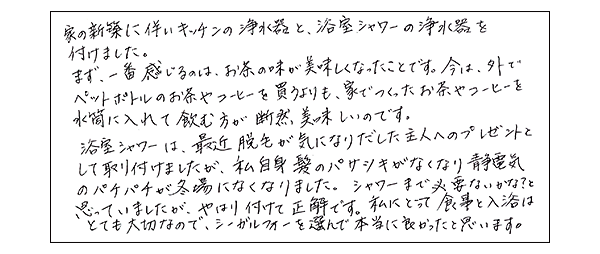 家の新築に伴いキッチンの浄水器と、浴室シャワーの浄水器を
付けました。
まず、一番感じるのは、お茶の味が美味しくなったことです。今は、外で
ペットボトルのお茶やコーヒーを買うよりも、家でつくったお茶やコーヒーを
水筒に入れて飲む方が断然美味しいのです。
浴室シャワーは、最近脱毛が気になりだした主人へのプレゼントと
して取り付けましたが、私自身髪のパサツキがなくなり静電気
のパチパチが冬場になくなりました。シャワーまで必要ないかな?と
思っていましたが、やはり付けて正解です。私にとって食事と入浴は
とても大切なので、シーガルフォーを選んで本当に良かったと思います。